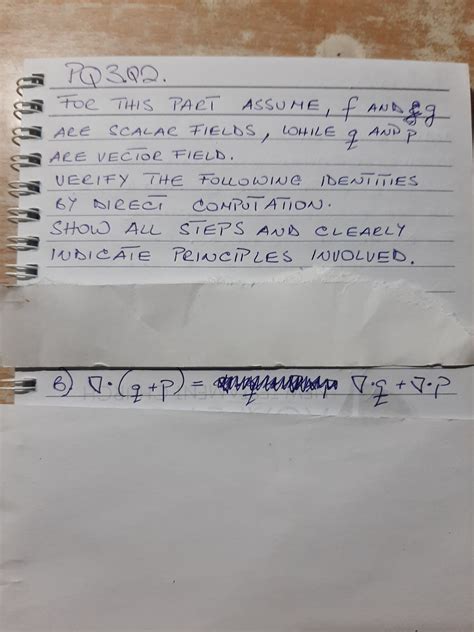 PQ3Q2.
FOR THIS PART ASSUME, f AND g
ARE SCALAR FIELDS, WHILE q AND p
ARE VECTOR FIELD.
VERIFY THE FOLLOWING IDENTITIES
BY DIRECT COMPUTATION.
SHOW ALL STEPS AND CLEARLY
INDICATE PRINCIPLES INVOLVED.
B) ∇·(q+p) = ∇·q + ∇·p